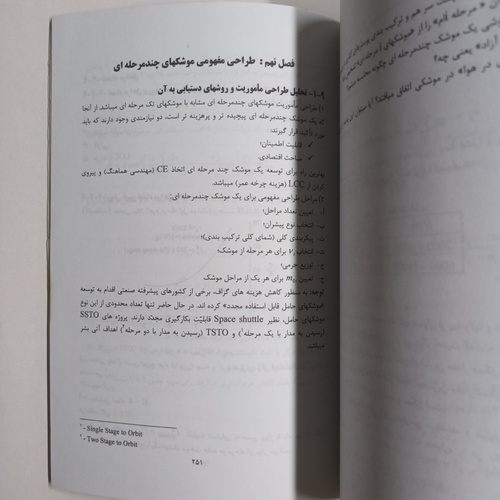 فصل نهم : طراحی مفهومی موشکهای چندمرحله ای
۹-۱- تحلیل طراحی مأموریت و روشهای دستیابی به آن
۱) طراحی مأموریت موشکهای چندمرحله ای مشابه با موشکهای تک مرحله ای میباشد. از آنجا
که یک موشک چندمرحله ای پیچیده تر و پرهزینه تر است، دو نیازمندی وجود دارند که باید
مورد تأکید قرار گیرند:
✓ قابلیت اطمینان؛
✓ مباحث اقتصادی.
بهترین راه برای توسعه یک موشک چند مرحله ای اتخاذ CE (مهندسی هماهنگ) و پیروی
کردن از LCC (هزینه چرخه عمر) میباشد.
۲) مراحل طراحی مفهومی برای یک موشک چندمرحله ای:
أ- تعیین تعداد مراحل؛
ب- انتخاب نوع پیشران؛
ت- پیکربندی کلی (شمای کلی ترکیب بندی)؛
ث- انتخاب برای هر مرحله از موشک؛
ج- توزیع جرمی؛
ح- تعیین برای هر یک از مراحل موشک
توجه: به منظور کاهش هزینه های گزاف، برخی از کشورهای پیشرفته صنعتی اقدام به توسعه
«موشکهای حامل قابل استفاده مجدد» کرده اند. در حال حاضر تنها تعداد محدودی از این نوع
موشکهای حامل، نظیر Space shuttle قابلیت بکارگیری مجدد دارند. پروژه های SSTO
(رسیدن به مدار با یک مرحله۱) و TSTO (رسیدن به مدار با دو مرحله۲) اهداف آتی بشر
میباشند.
۱ - Single Stage to Orbit
۲ - Two Stage to Orbit
۲۵۱
سر هم و ترکیب بندی
« مرحله اُم» را از
یک موشک چندمرحله ای چگونه
آزاد» یعنی چه؟
در هوا» در موشکی اتفاق میافتد؟ آیا